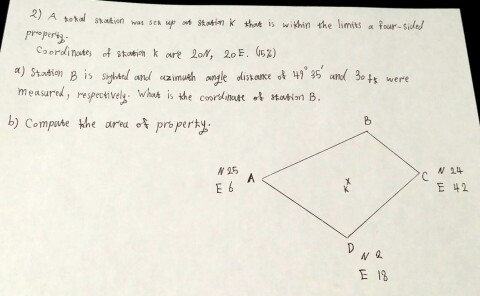 2) A total station was set up at station K that is within the limits a four-sided
property.
Coordinates of station K are 20N, 20E. (15%)
a) Station B is sighted and azimuth angle distance of 49° 35' and 30 ft were
measured, respectively. What is the coordinate of station B.
b) Compute the area of property.
B
N 25
E 6
A
K
C
N 24
E 42
D
N 2
E 18